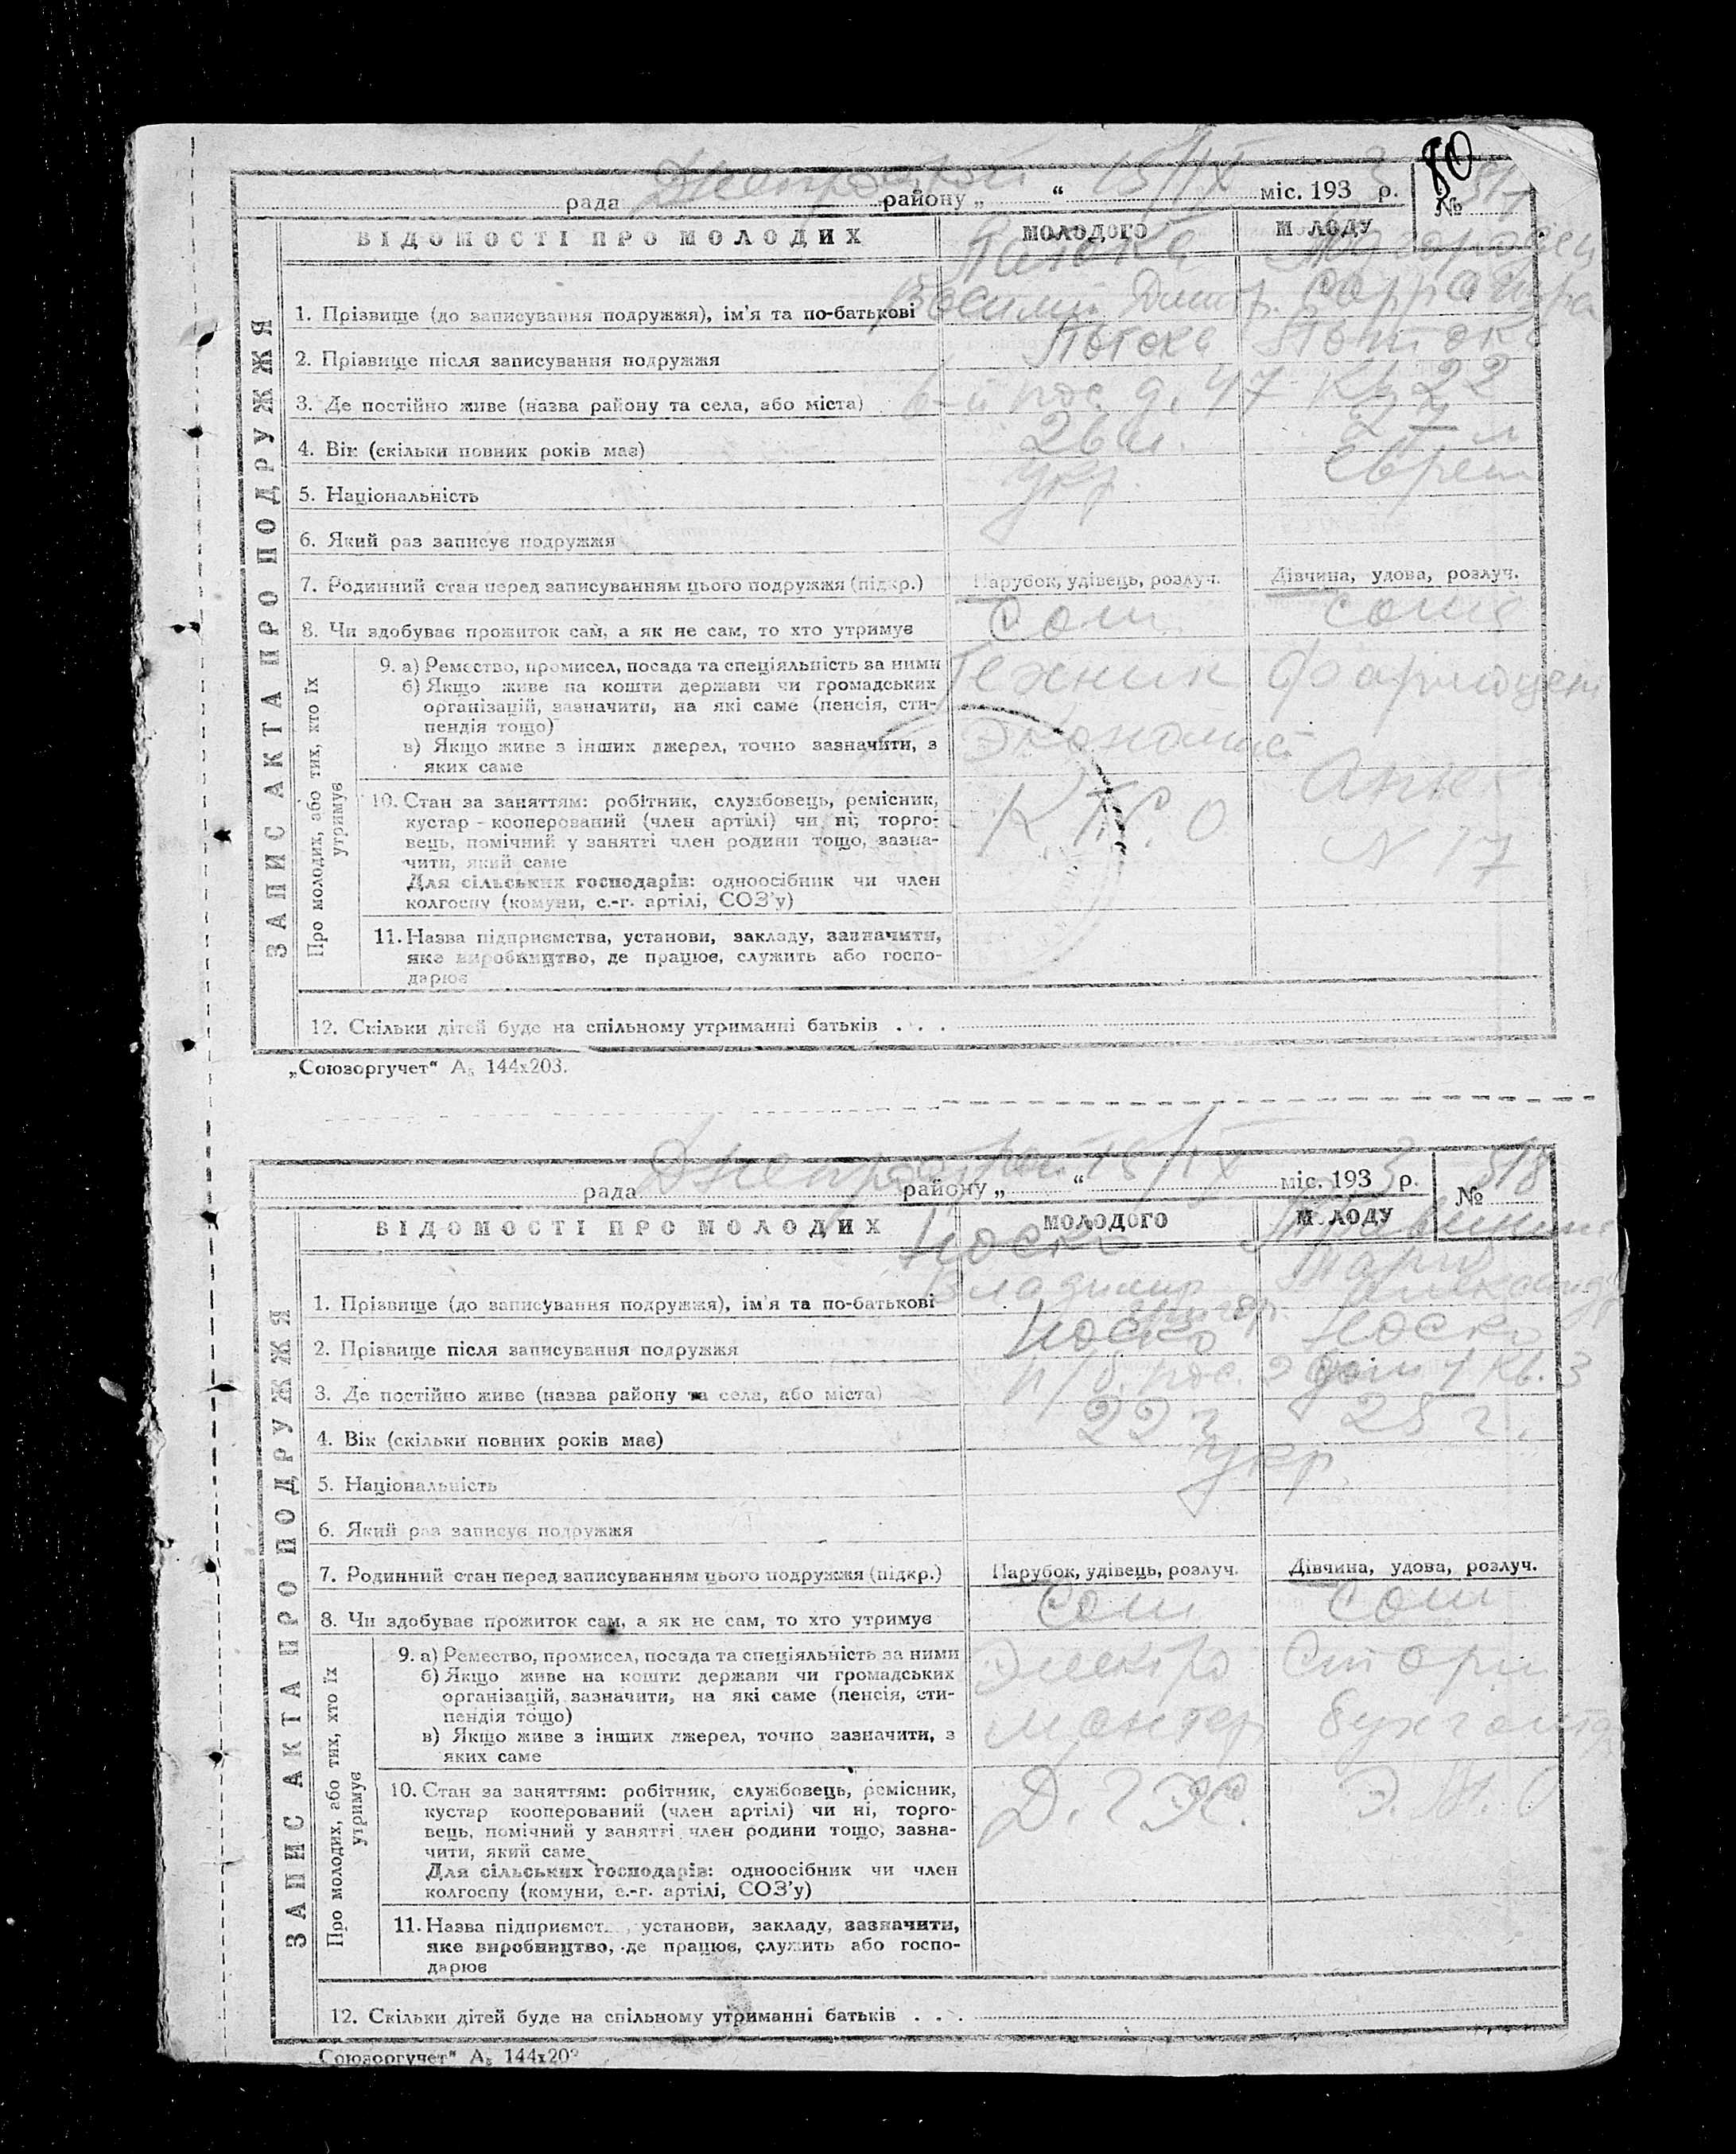 80
рада Днепровской району „ “ 15/IX міс. 193 3 р. № 517
ВІДОМОСТІ ПРО МОЛОДИХ МОЛОДОГО М ЛОДУ
ЗАПИС АКТА ПРО ПОДРУЖЖЯ
1. Прізвище (до записування подружжя), ім'я та по-батькові
2. Прізвище після записування подружжя
3. Де постійно живе (назва району та села, або міста) 6-й пос. д. 47 Кв 22
4. Вік (скільки повних років має) 26 л. 27 л
5. Національність Укр. Еврей
6. Який раз записує подружжя
7. Родинний стан перед записуванням цього подружжя (підкр.) Парубок, удівець, розлуч. Дівчина, удова, розлуч.
8. Чи здобуває прожиток сам, а як не сам, то хто утримує Сам сама
Про молодих, або тих, хто їх
утримує
9. а) Ремество, промисел, посада та спеціяльність за ними Техник фармацевт
б) Якщо живе на кошти держави чи громадських
організацій, зазначити, на які саме (пенсія, сти-
пендія тощо)
в) Якщо живе з інших джерел, точно зазначити, з Экономист
яких саме
10. Стан за заняттям: робітник, службовець, ремісник,
кустар-кооперований (член артілі) чи ні; торго-
вець, помічний у занятті член родини тощо, зазна-
чити, який саме N 17
Для сільських господарів: одноосібник чи член
колгоспу (комуни, с.-г. артілі, СОЗ'у)
11. Назва підприємства, установи, закладу, зазначити,
яке виробництво, де працює, служить або госпо-
дарює
12. Скільки дітей буде на спільному утриманні батьків . . .
„Союзоргучет“ А₅ 144х203.
рада Днепровской району „ “ 15/IX міс. 193 3 р. № 518
ВІДОМОСТІ ПРО МОЛОДИХ МОЛОДОГО М ЛОДУ
Носко
ЗАПИС АКТА ПРО ПОДРУЖЖЯ
1. Прізвище (до записування подружжя), ім'я та по-батькові Владимир Григор.
2. Прізвище після записування подружжя Носко Носко
3. Де постійно живе (назва району та села, або міста) п/б. пос. 2 дом 1 Кв. 3
4. Вік (скільки повних років має) 22 г. 25 г.
5. Національність Укр.
6. Який раз записує подружжя
7. Родинний стан перед записуванням цього подружжя (підкр.) Парубок, удівець, розлуч. Дівчина, удова, розлуч.
8. Чи здобуває прожиток сам, а як не сам, то хто утримує Сам Сам
Про молодих, або тих, хто їх
утримує
9. а) Ремество, промисел, посада та спеціяльність за ними Электро
б) Якщо живе на кошти держави чи громадських
організацій, зазначити, на які саме (пенсія, сти-
пендія тощо) монтер бухгалтер
в) Якщо живе з інших джерел, точно зазначити, з
яких саме
10. Стан за заняттям: робітник, службовець, ремісник, Д. ГЭС.
кустар кооперований (член артілі) чи ні, торго-
вець, помічний у занятті член родини тощо, зазна-
чити, який саме
Для сільських господарів: одноосібник чи член
колгоспу (комуни, с.-г. артілі, СОЗ'у)
11. Назва підприємст , установи, закладу, зазначити,
яке виробництво, де працює, служить або госпо-
дарює
12. Скільки дітей буде на спільному утриманні батьків . . .
Союзоргучет“ А₅ 144х203